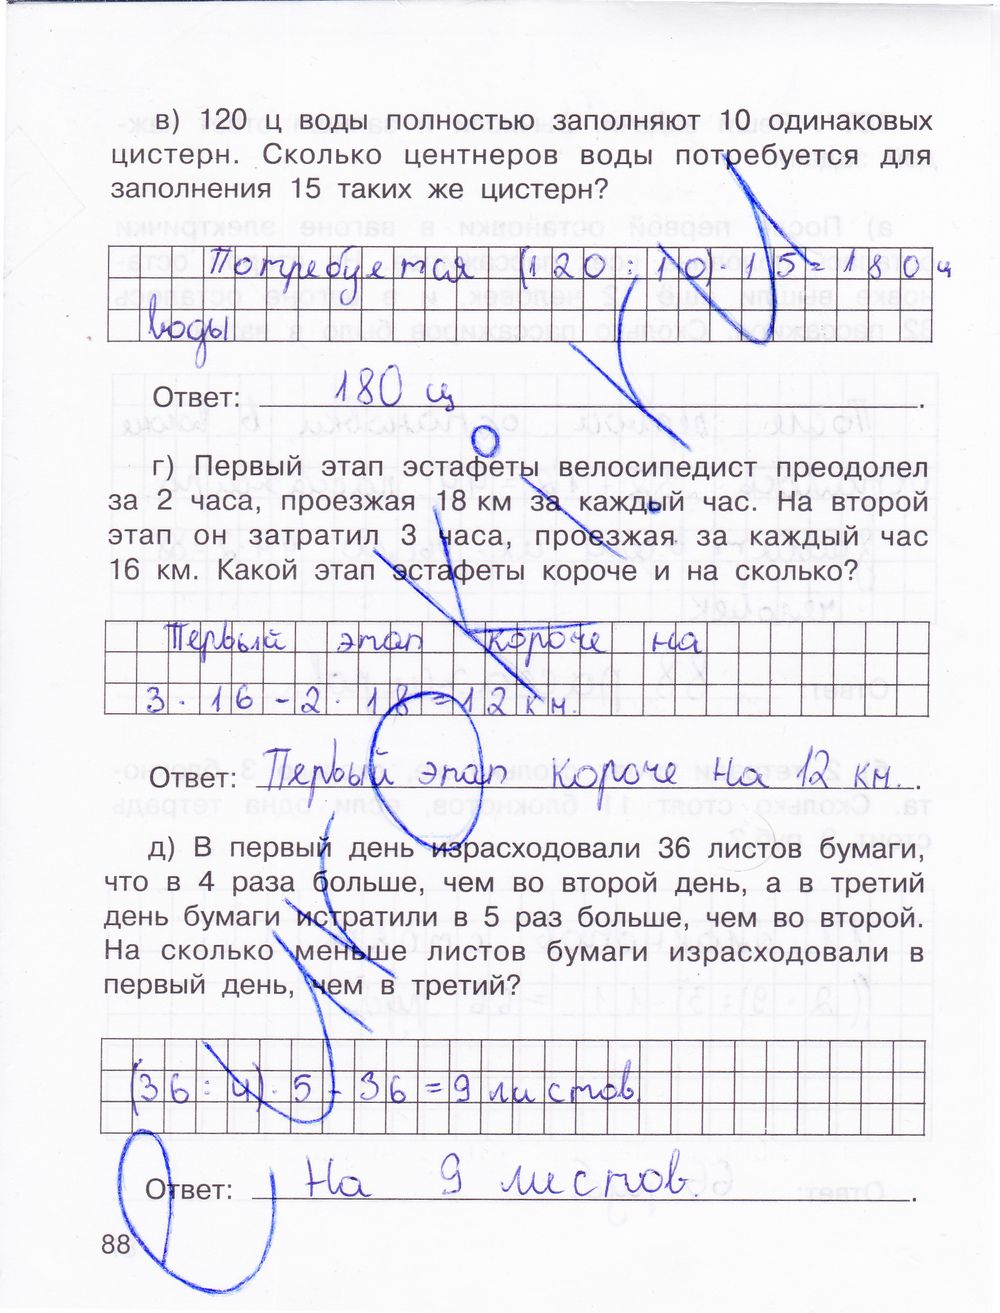 в) 120 ц воды полностью заполняют 10 одинаковых
цистерн. Сколько центнеров воды потребуется для
заполнения 15 таких же цистерн?
Потребуется (120 : 10) · 15 = 180 ц
воды
Ответ: 180 ц.
г) Первый этап эстафеты велосипедист преодолел
за 2 часа, проезжая 18 км за каждый час. На второй
этап он затратил 3 часа, проезжая за каждый час
16 км. Какой этап эстафеты короче и на сколько?
Первый этап короче на
3 · 16 - 2 · 18 = 12 км.
Ответ: Первый этап короче на 12 км.
д) В первый день израсходовали 36 листов бумаги,
что в 4 раза больше, чем во второй день, а в третий
день бумаги истратили в 5 раз больше, чем во второй.
На сколько меньше листов бумаги израсходовали в
первый день, чем в третий?
(36 : 4) · 5 - 36 = 9 листов.
Ответ: На 9 листов.
88